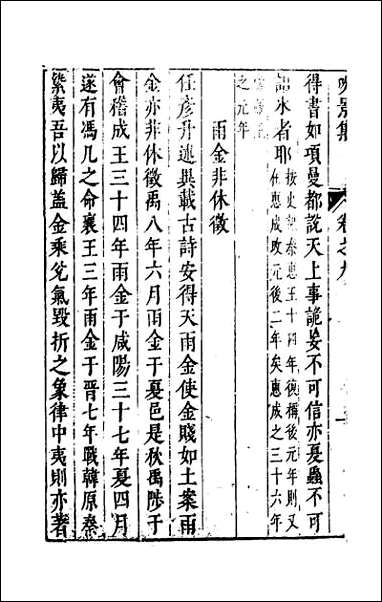 吹景集 卷之九
得書如項曼都說天上事詭妄不可信亦夏蟲不可
語氷者耶 按史記秦惠王十四年復稱後元年則又
在惠成改元後二年矣惠成之三十六年
之元年
雨金非休徵
任彥升述異載古詩安得天雨金使金賤如土案雨
金亦非休徵禹八年六月雨金于夏邑是秋禹陟于
會稽成王三十四年雨金于咸陽三十七年夏四月
遂有馮几之命襄王三年雨金于晉七年戰韓原秦
縶夷吾以歸蓋金乘兌氣毀折之象律中夷則亦著